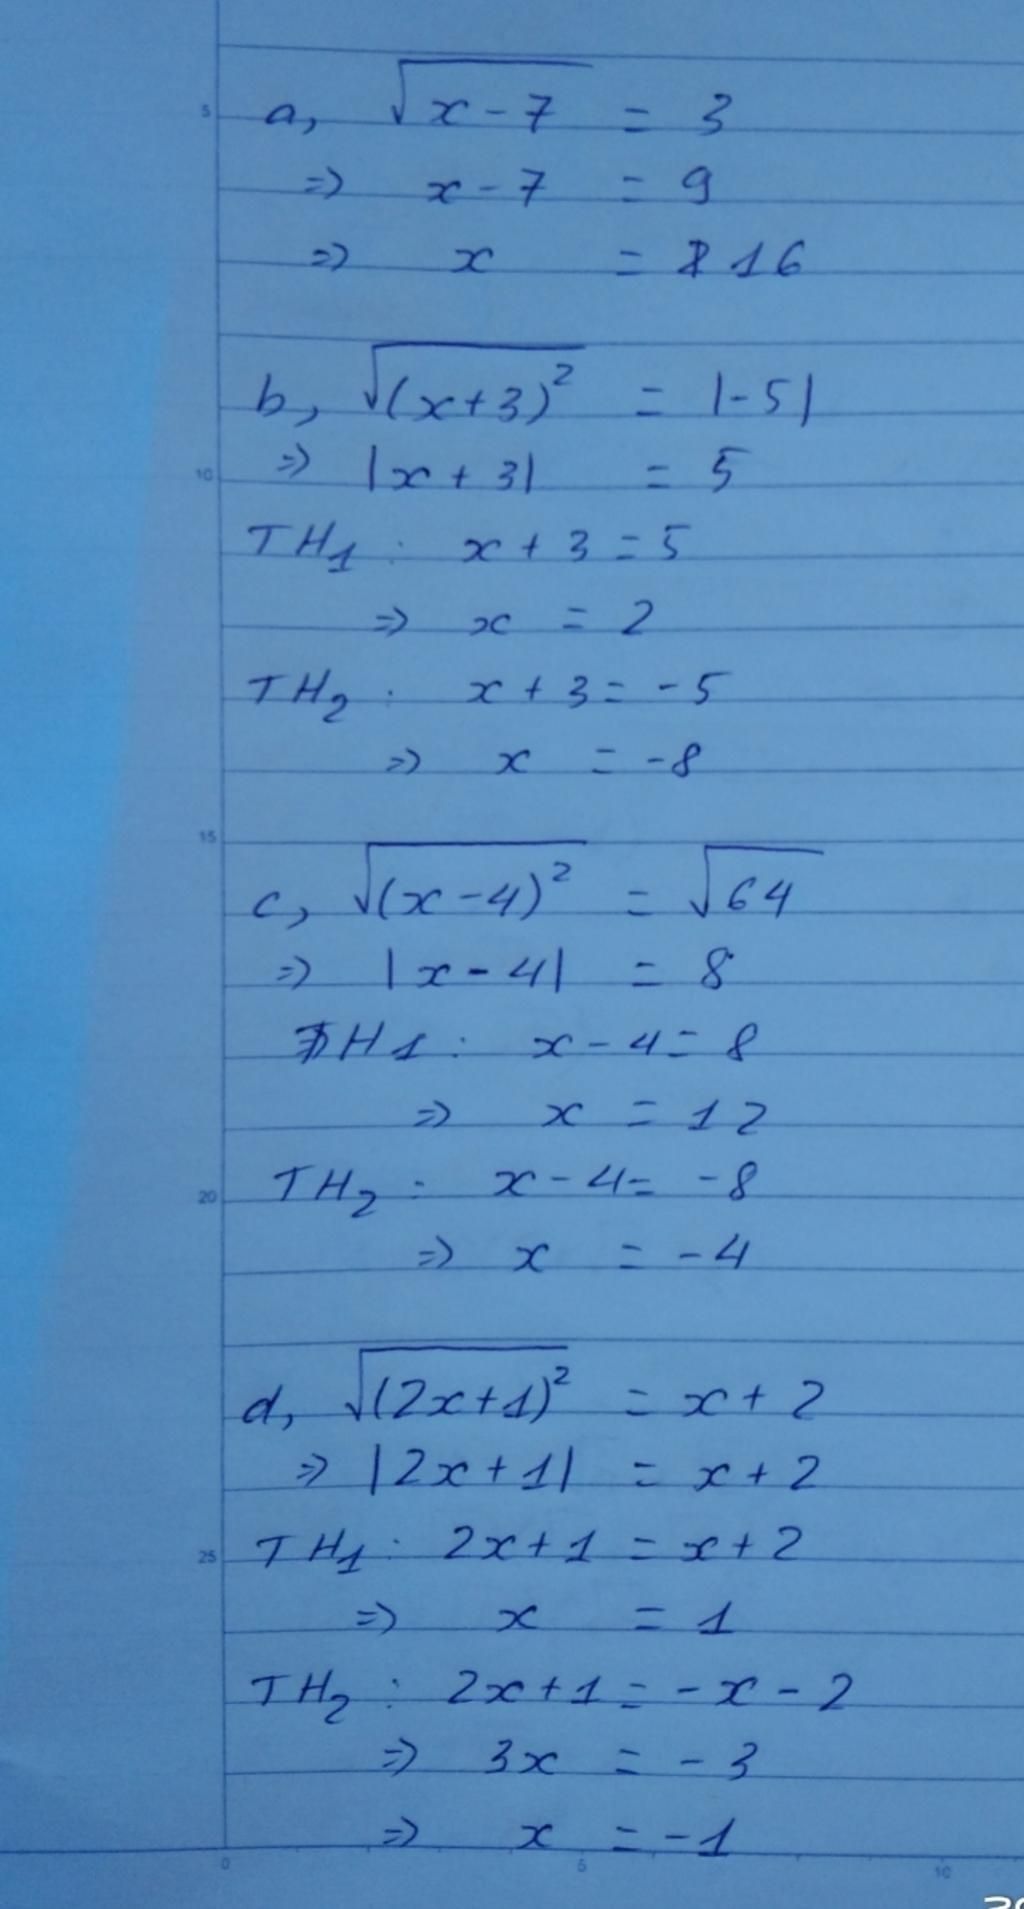 5
a, √(x-7) = 3
=> x-7 = 9
=> x = 16
b, √((x+3)²) = |-5|
10
=> |x+3| = 5
TH1: x+3=5
=> x = 2
TH2: x+3=-5
=> x = -8
15
c, √((x-4)²) = √64
=> |x-4| = 8
TH1: x-4=8
=> x = 12
20
TH2: x-4= -8
=> x = -4
d, √((2x+1)²) = x+2
=> |2x+1| = x+2
25
TH1: 2x+1 = x+2
=> x = 1
TH2: 2x+1=-x-2
=> 3x = -3
=> x = -1
0 5 10